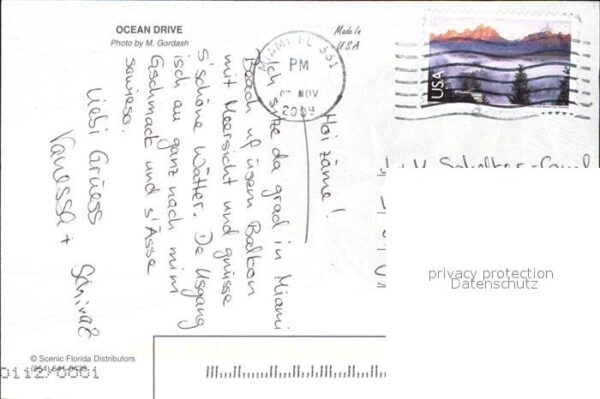 OCEAN DRIVE
Photo by M. Gordash
Made In
USA
MIAMI FL 331
PM
NOV
2009
USA
Hoi zäme!
Ich sitze da grad in Miami
Beach uf üsem Balkon
mit Meersicht und gnüsse
s'schöne Wätter. De Usgang
isch au ganz nach mim
Gschmack und s'Ässe
sowieso.
Liebi Grüess
Vanessa +
privacy protection
Datenschutz
© Scenic Florida Distributors